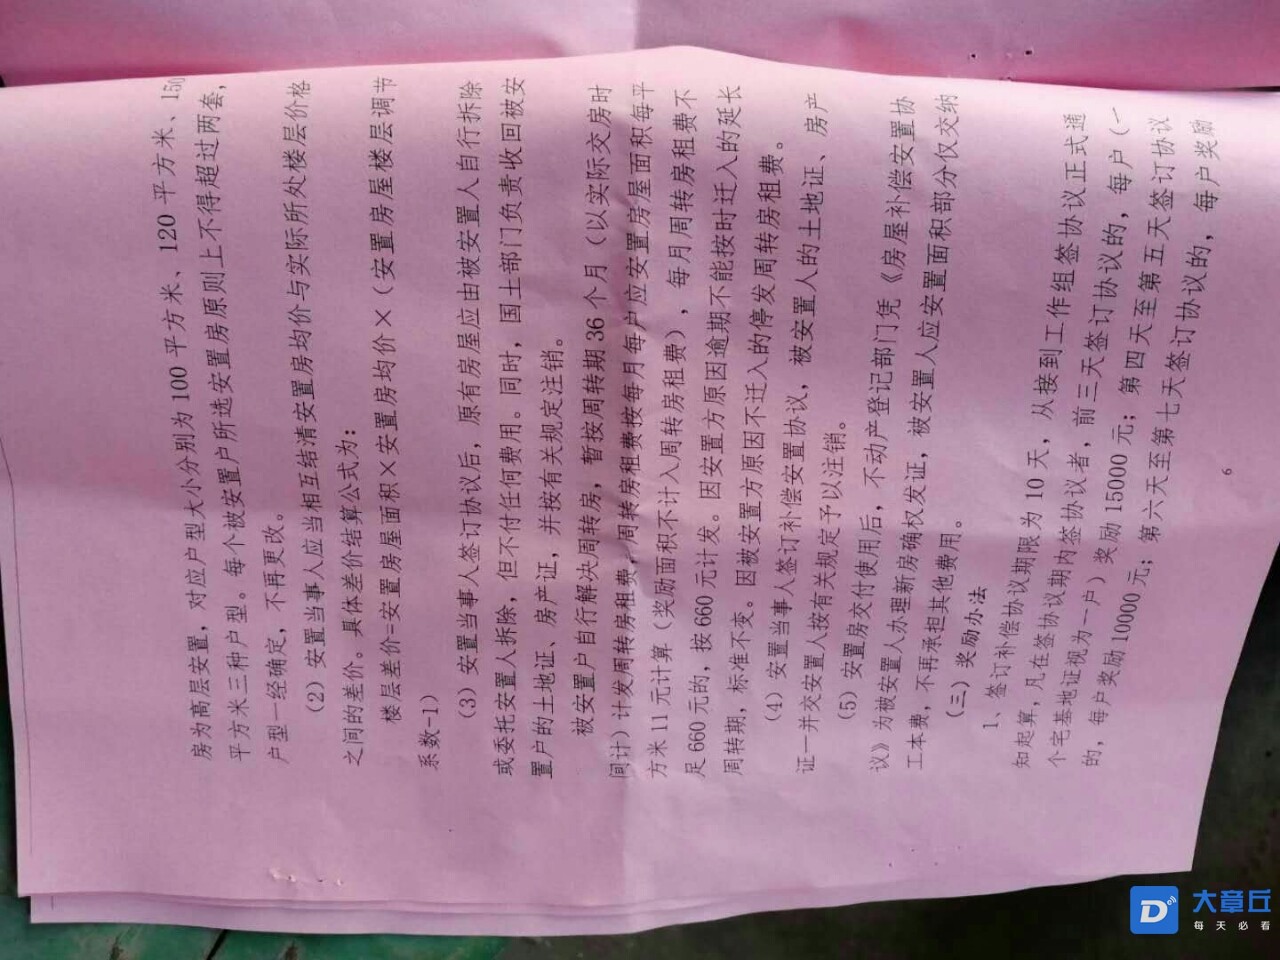 房为高层安置，对应户型大小分别为 100 平方米、120 平方米、150
平方米三种户型。每个被安置户所选安置房原则上不得超过两套，
户型一经确定，不再更改。
（2）安置当事人应当相互结清安置房均价与实际所处楼层价格
之间的差价。具体差价结算公式为：
楼层差价=安置房屋面积×安置房均价×（安置房屋楼层调节
系数-1）
（3）安置当事人签订协议后，原有房屋应由被安置人自行拆除
或委托安置人拆除，但不付任何费用。同时，国土部门负责收回被安
置户的土地证、房产证，并按有关规定注销。
被安置户自行解决周转房，暂按周转期 36 个月（以实际交房时
间计）计发周转房租费，周转房租费按每月每户应安置房屋面积每平
方米 11 元计算（奖励面积不计入周转房租费），每月周转房租费不
足 660 元的，按 660 元计发。因安置方原因逾期不能按时迁入的延长
周转期，标准不变。因被安置方原因不迁入的停发周转房租费。
（4）安置当事人签订补偿安置协议，被安置人的土地证、房产
证一并交安置人按有关规定予以注销。
（5）安置房交付使用后，不动产登记部门凭《房屋补偿安置协
议》为被安置人办理新房确权发证，被安置人应安置面积部分仅交纳
工本费，不再承担其他费用。
（三）奖励办法
1、签订补偿协议期限为 10 天，从接到工作组签协议正式通
知起算，凡在签协议期内签协议者，前三天签订协议的，每户（一
个宅基地证视为一户）奖励 15000 元；第四天至第五天签订协议
的，每户奖励 10000 元；第六天至第七天签订协议的，每户奖励
6
大章丘
每天必看